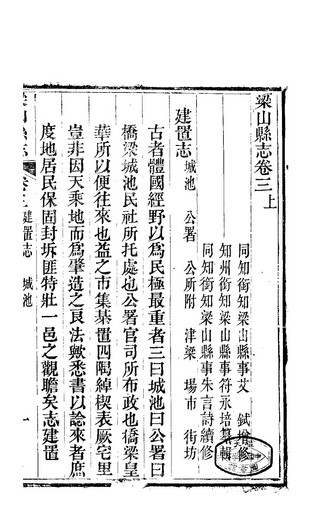 梁山縣志卷三上
同知銜知梁山縣事艾 鉽
知州銜知梁山縣事符永培纂輯
同知銜知梁山縣事朱言詩續修
建置志 城池 公署 公所附 津梁 場市 街坊
古者體國經野以為民極最重者三曰城池曰公署曰
橋梁城池民社所托處也公署官司所布政也橋梁皇
華所以便往來也益之市集棊置四隅綽楔表厥宅里
豈非因天乘地而為肇造之良法歟悉書以諗來者庶
度地居民保固封圻匪特壯一邑之觀瞻矣志建置
梁山縣志 卷三 建置志 城池 一